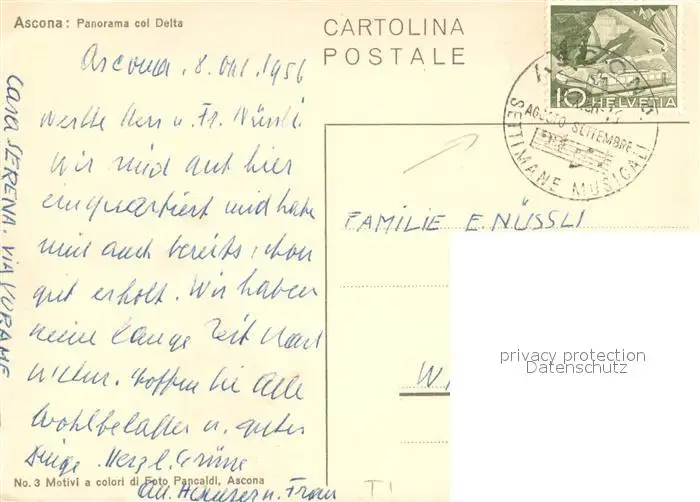 Ascona: Panorama col Delta
CARTOLINA
POSTALE
Ascona, 8. Okt. 1956
Werthe Herr u. Fr. Nüssli.
Wir sind gut hier
einquartiert und habe
uns auch bereits schon
gut erholt. Wir haben
keine lange Zeit nach
Hoffen Sie Alle
Wohlbehalten u. guter
Dinge. Herzl. Grüsse
u. Frau
CASA SERENA. VIA
HELVETIA
10
ASCONA
AGOSTO SETTEMBRE
SETTIMANE MUSICALI
FAMILIE E. NÜSSLI
W
privacy protection
Datenschutz
No. 3 Motivi a colori di Foto Pancaldi, Ascona
TI